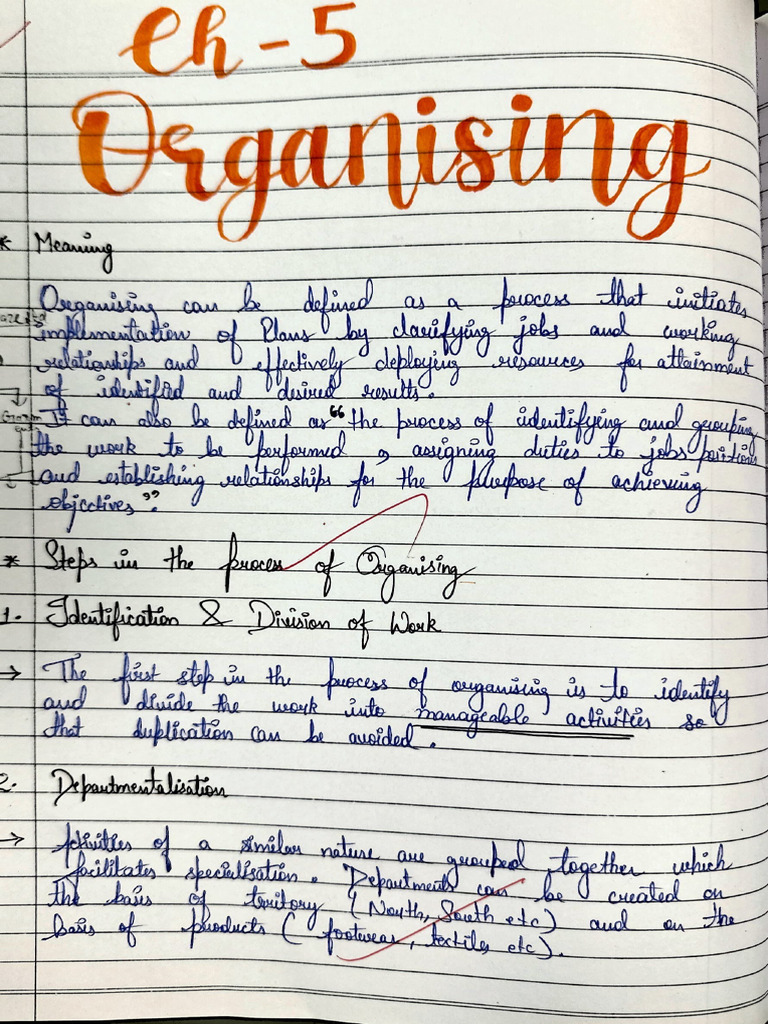 Ch - 5
Organising
* Meaning
Organising can be defined as a process that initiates
implementation of Plans by clarifying jobs and working
relationships and effectively deploying resources for attainment
of identified and desired results.
It can also be defined as "the process of identifying and grouping
the work to be performed, assigning duties to jobs positions
and establishing relationships for the purpose of achieving
objectives".
* Steps in the process of Organising
1. Identification & Division of Work
→ The first step in the process of organising is to identify
and divide the work into manageable activities so
that duplication can be avoided.
2. Departmentalisation
→ Activities of a similar nature are grouped together which
facilitates specialisation. Departments can be created on
the basis of territory (North, South etc) and on the
basis of products (footwear, textiles etc).